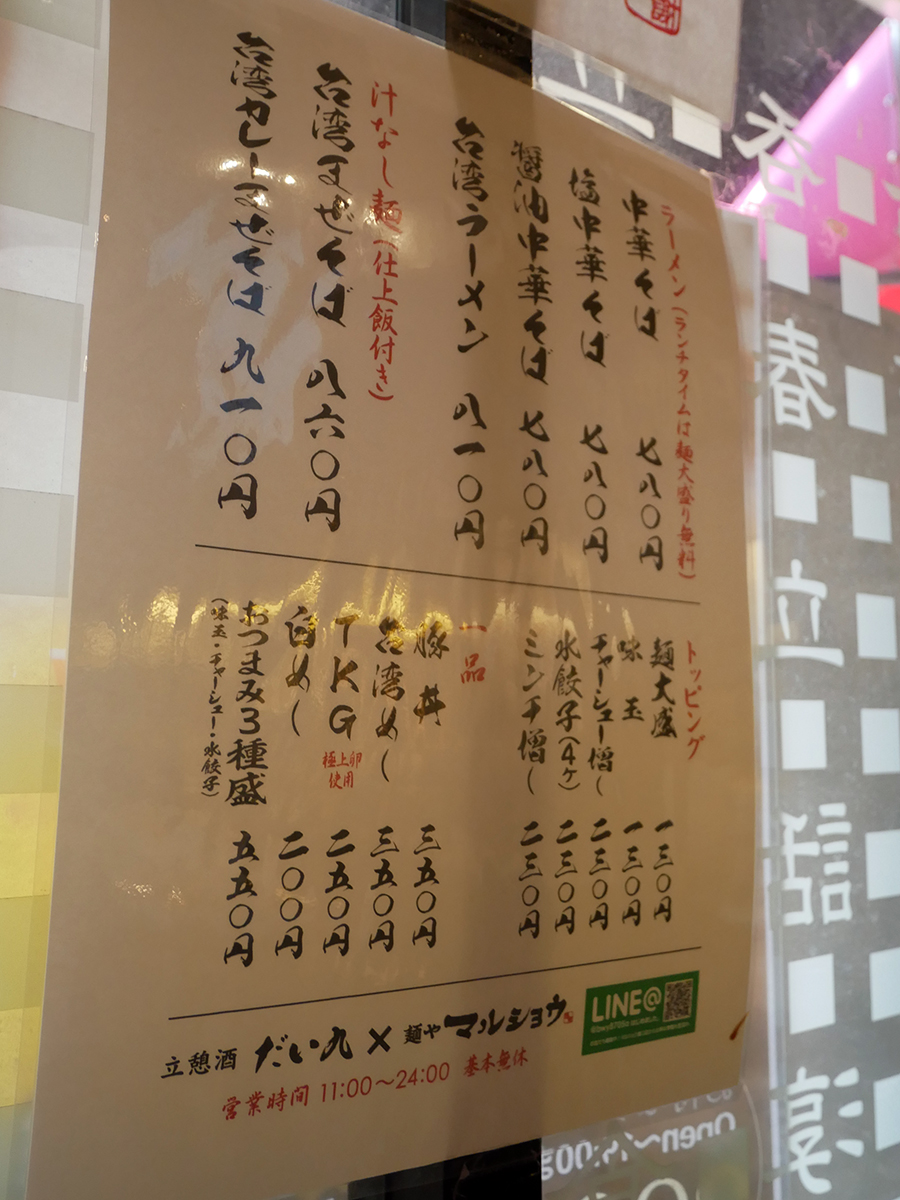 ラーメン(ランチタイムは麺大盛り無料)
中華そば 七八〇円
塩中華そば 七八〇円
醤油中華そば 七八〇円
台湾ラーメン 八一〇円
汁なし麺(仕上飯付き)
台湾まぜそば 八六〇円
台湾カレーまぜそば 九一〇円
トッピング
麺大盛 一三〇円
味玉 一三〇円
チャーシュー増し 二三〇円
水餃子(4ヶ) 二三〇円
ミンチ増し 二三〇円
一品
豚丼 三五〇円
台湾めし 三五〇円
TKG 極上卵使用 二五〇円
白めし 二〇〇円
おつまみ3種盛 五五〇円
(味玉・チャーシュー・水餃子)
立憩酒 だい九 × 麺や マルショウ
営業時間 11:00〜24:00 基本無休
LINE@
春
立